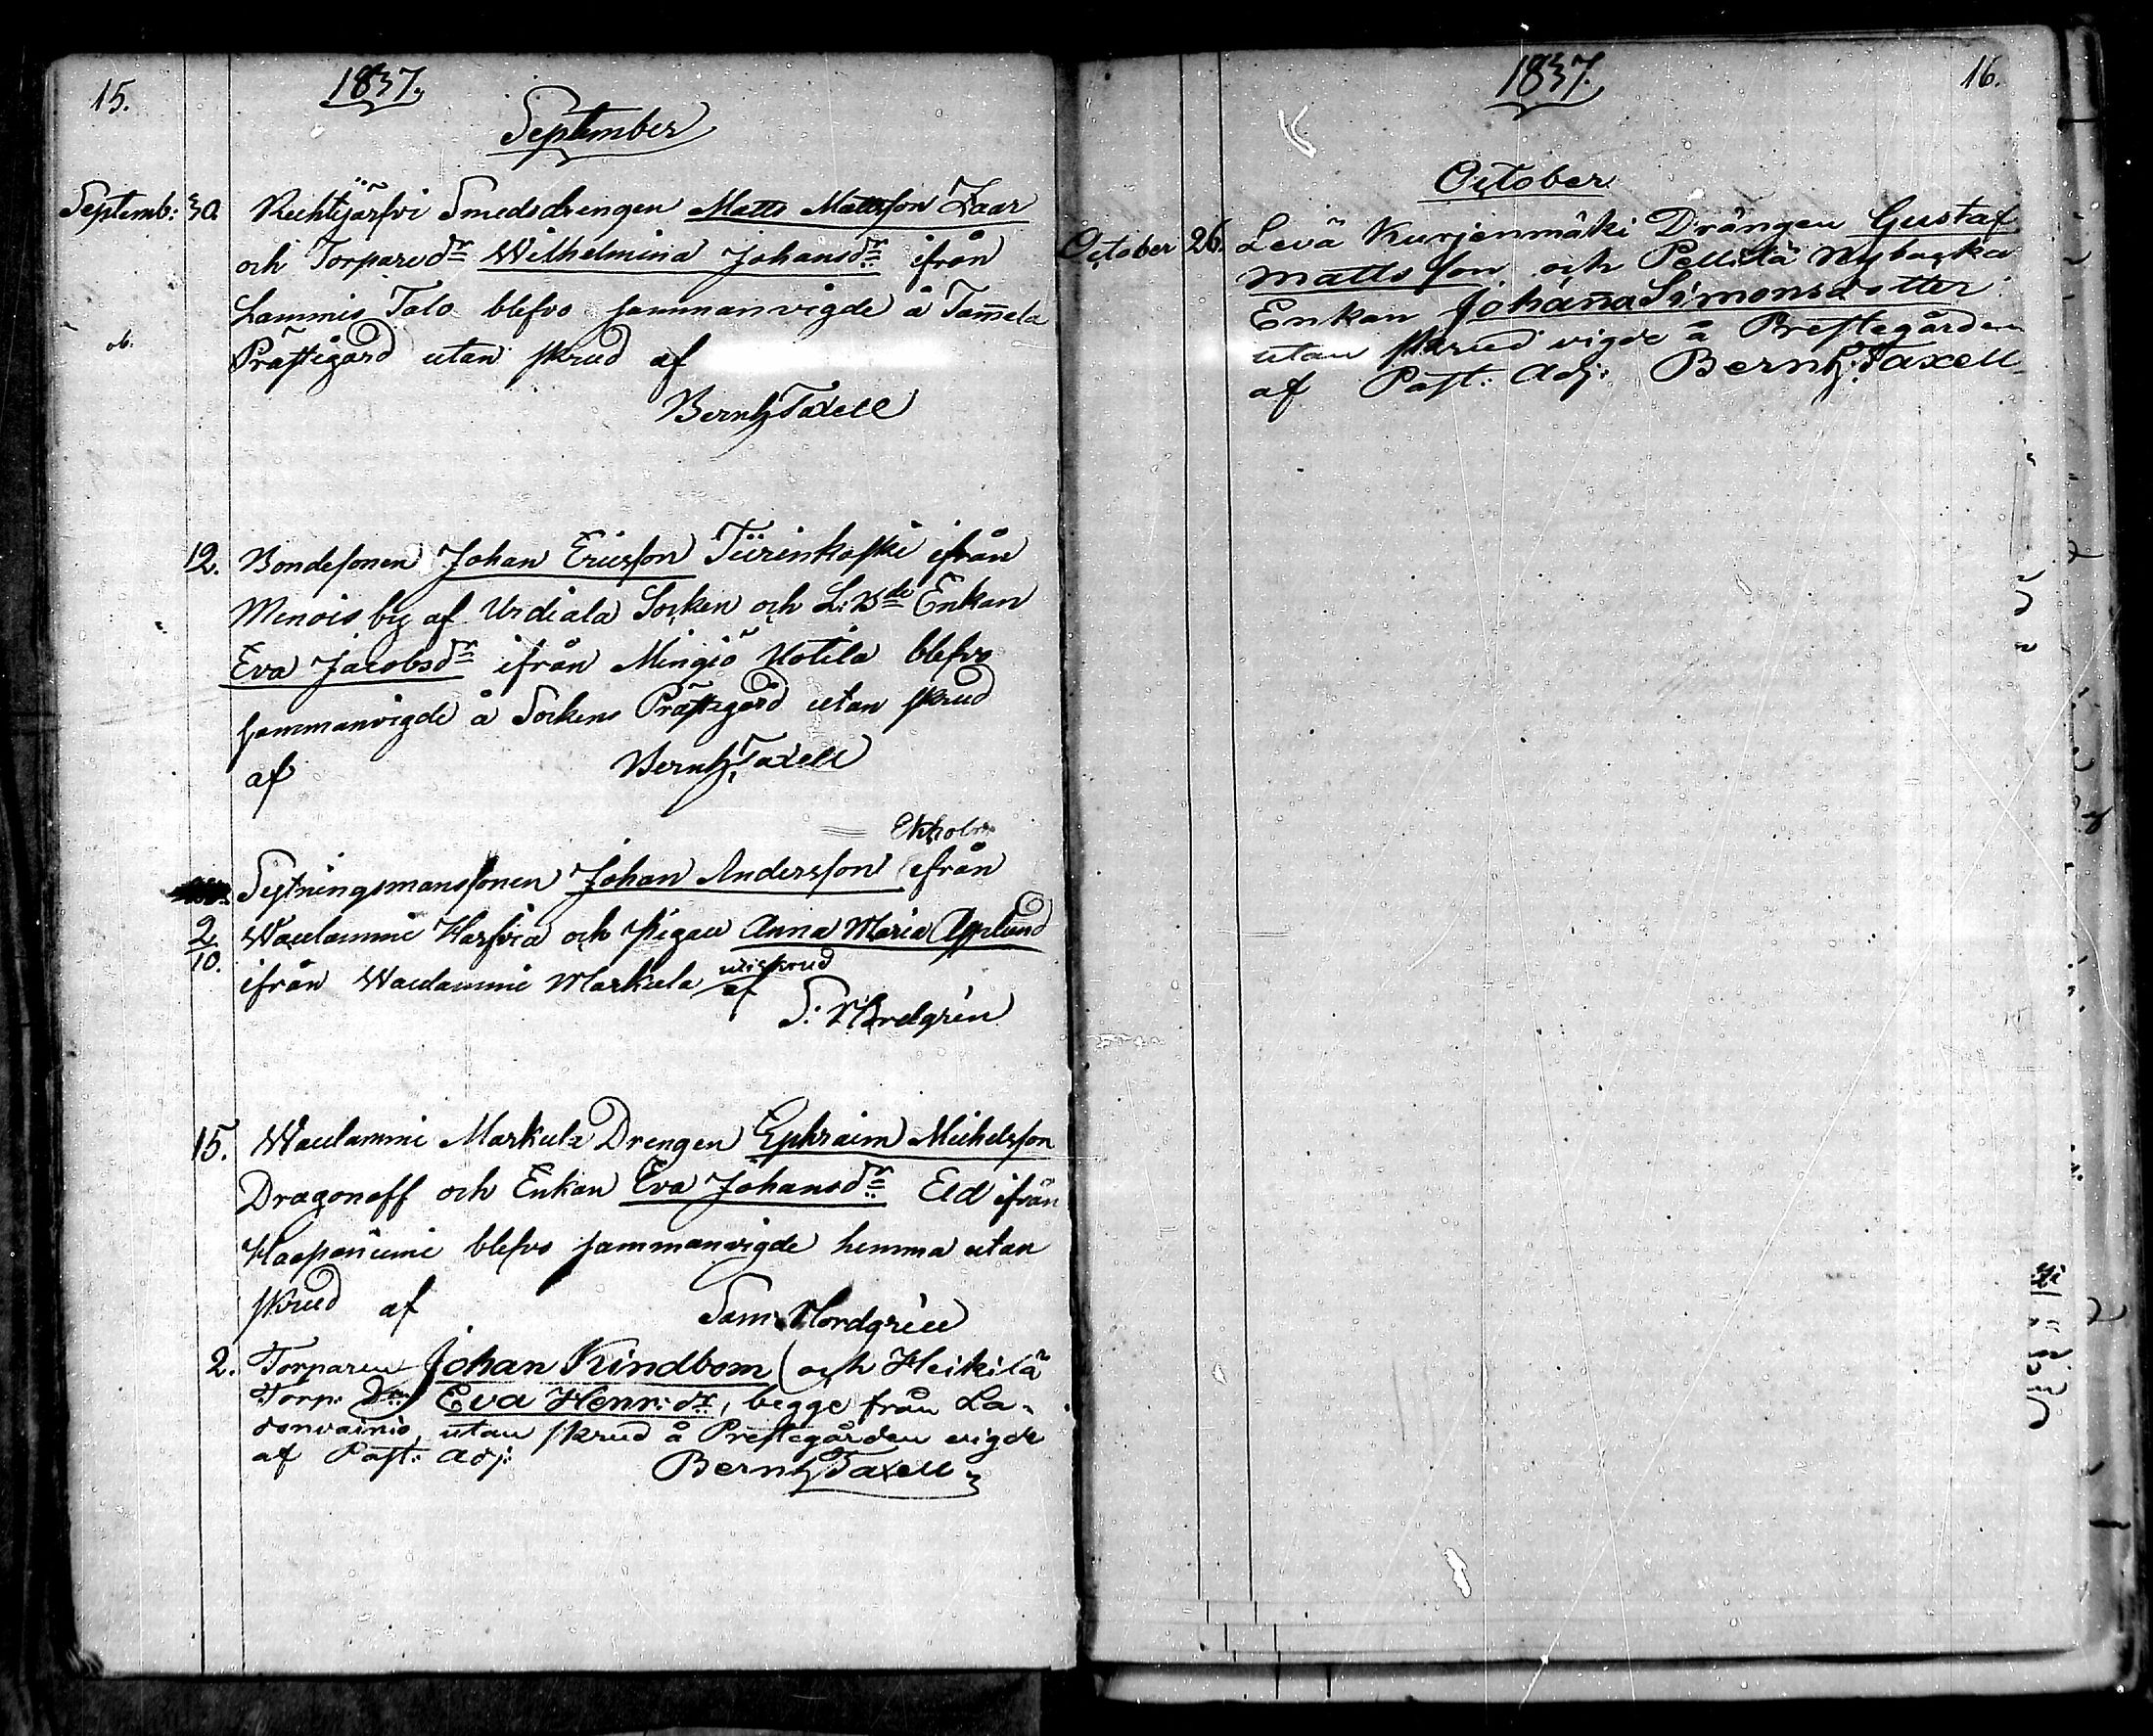 15.
1837.
September
Septemb: 30. Rechtijärfvi Smedsdrengen Matts Mattsson Zaar
och Torparedr Wilhelmina Johansdr ifrån
Lammis Talo blefvo sammanvigde å Tam̄ela
Prästegård utan skrud af
Bernh: Taxell
12. Bondesonen Johan Ericsson Tiirinkoski ifrån
Menois by af Urdiala Socken och L: Bde Enkan
Eva Jacobsdr ifrån Mingiö Uotila blefvo
sammanvigde å Sockens Prästegård utan skrud
af Bernh: Taxell
Ekholm
Sextningsmanssonen Johan Andersson ifrån
2/10. Waulammi Harfvia och pigan Anna Maria Applund
ifrån Waulammi Markula af
S: Nordgrén
15. Waulammi Markula Drengen Ephraim Michelsson
Dragonoff och Enkan Eva Johansdr Eld ifrån
Haapaniemi blefvo sammanvigde hemma utan
skrud af Sam: Nordgrén
2. Torparen Johan Kindbom och Heikilä
Torp: Dr Eva Henr:dr, begge från La-
donvainio, utan skrud å Prestegården vigde
af Past: Adj: Bernh: Taxell
1837.
16.
October
October 26. Levä Kurjenmäki Drängen Gustaf
Mattsson och Pellilä Nybacka
Enkan Johan̄a Simonsdotter
utan skrud vigde å Prestegården
af Past: Adj: Bernh: Taxell